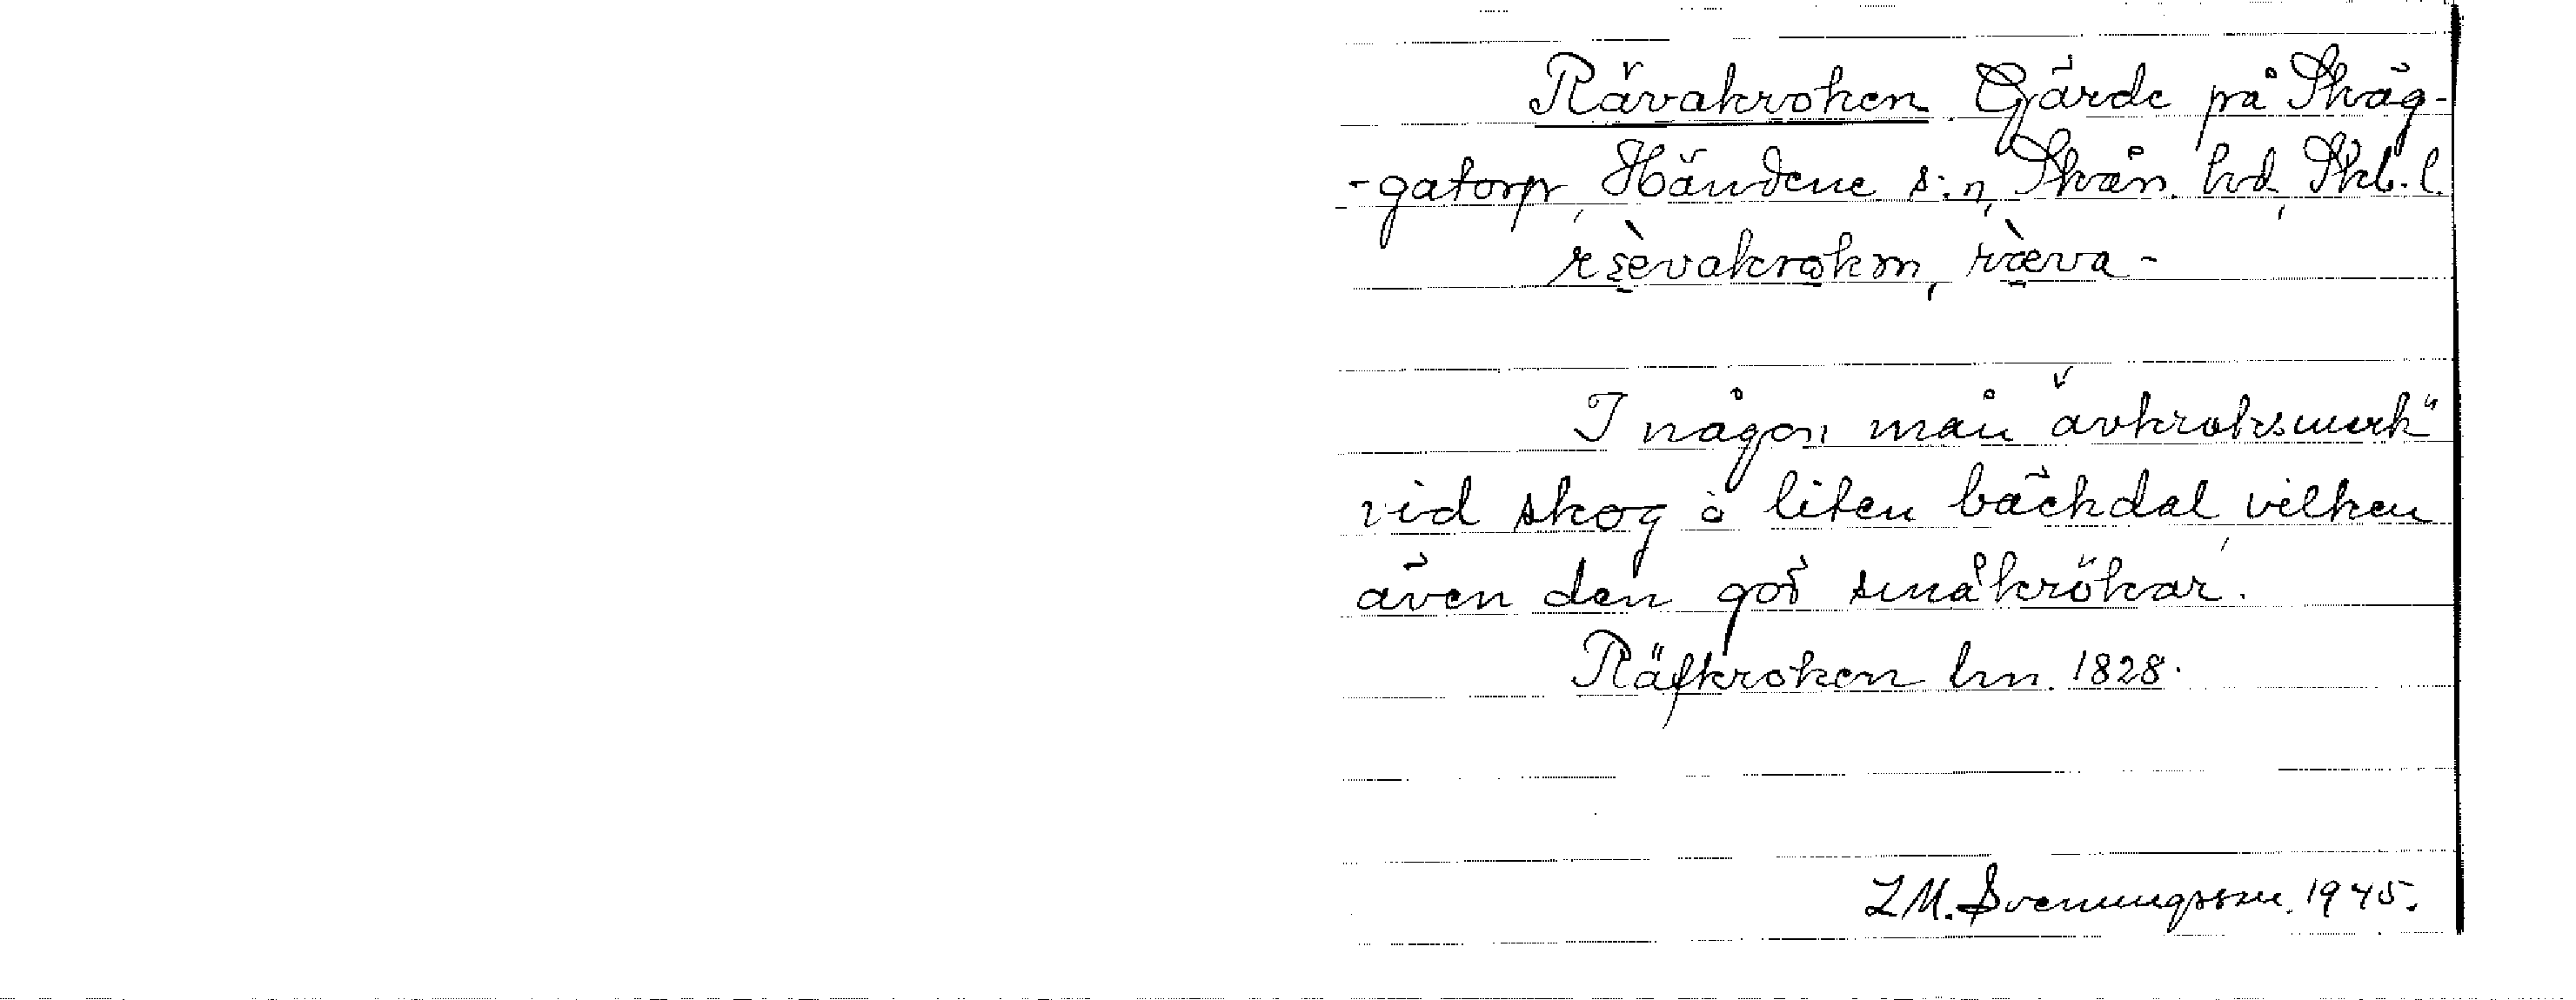 Rävakroken. Gärde på Skäg-
-gatorp, Händene s:n, Skån. hd, Skb. l.
rævakrokm, ræva-
I någon mån "avkroksmark"
vid skog o liten bäckdal, vilken
även den gör småkrökar.
Räfkroken hm. 1828.
L M. Svenungsson. 1945.